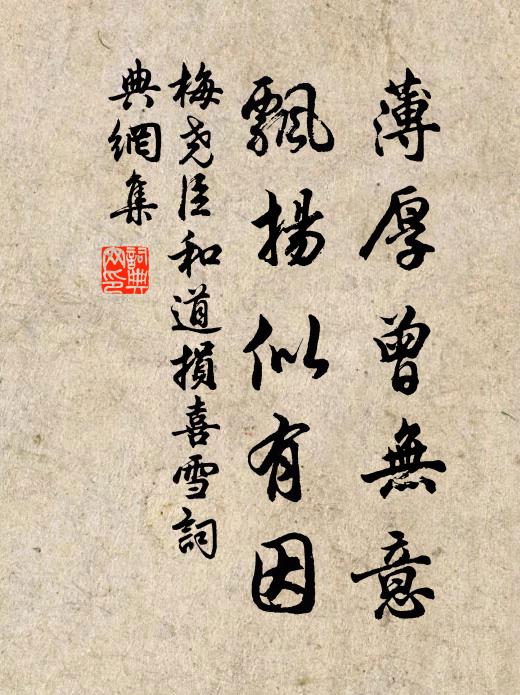 薄厚曾無意
飄揚似有因
梅尧臣和道損喜雪詞
典網集
詞典